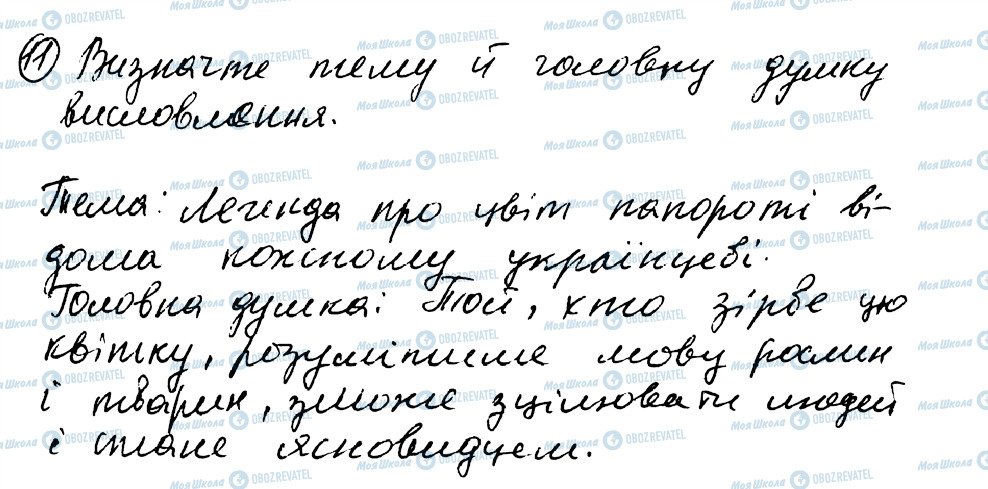 11 Визначте тему й головну думку
висловлення.
Тема: Легенда про цвіт папороті ві-
дома кожному українцеві.
Головна думка: Той, хто зірве цю
квітку, розумітиме мову рослин
і тварин, зможе зцілювати людей
і стане ясновидцем.